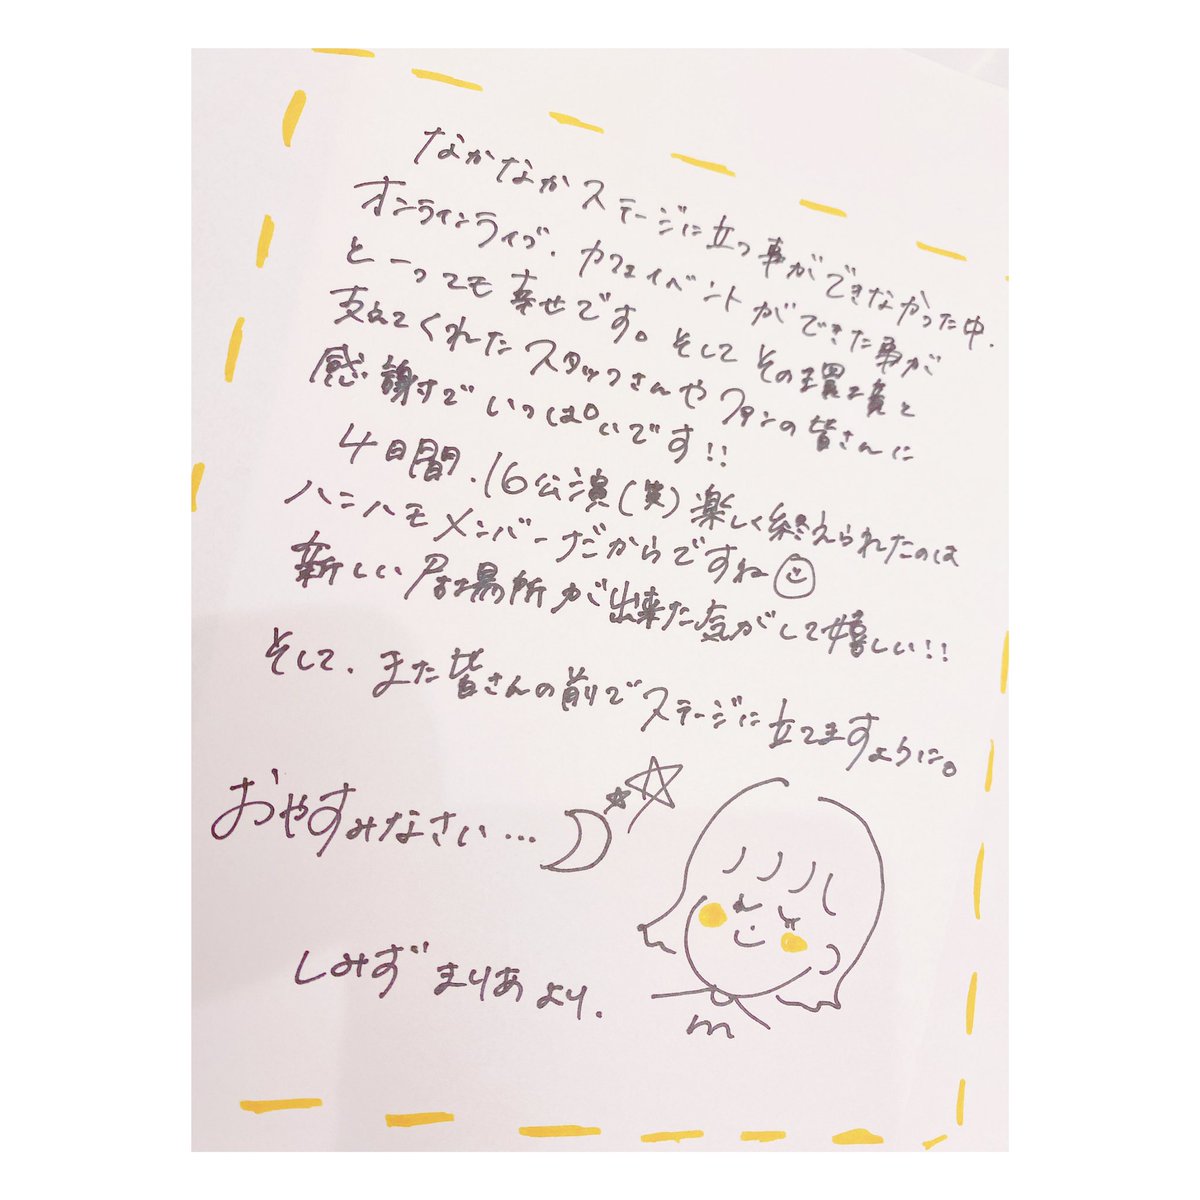 なかなかステージに立つ事ができなかった中.
オンラインライブ、カフェイベントができた事が
とーっても幸せです。そしてその環境と
支えてくれたスタッフさんやファンの皆さんに
感謝でいっぱいです!!
4日間.16公演(笑)楽しく終えられたのは
ハニハモメンバーだからですね
新しい居場所が出来た気がして嬉しい!!
そして、また皆さんの前でステージに立てますように。
おやすみなさい…
しみずまりあより.
m